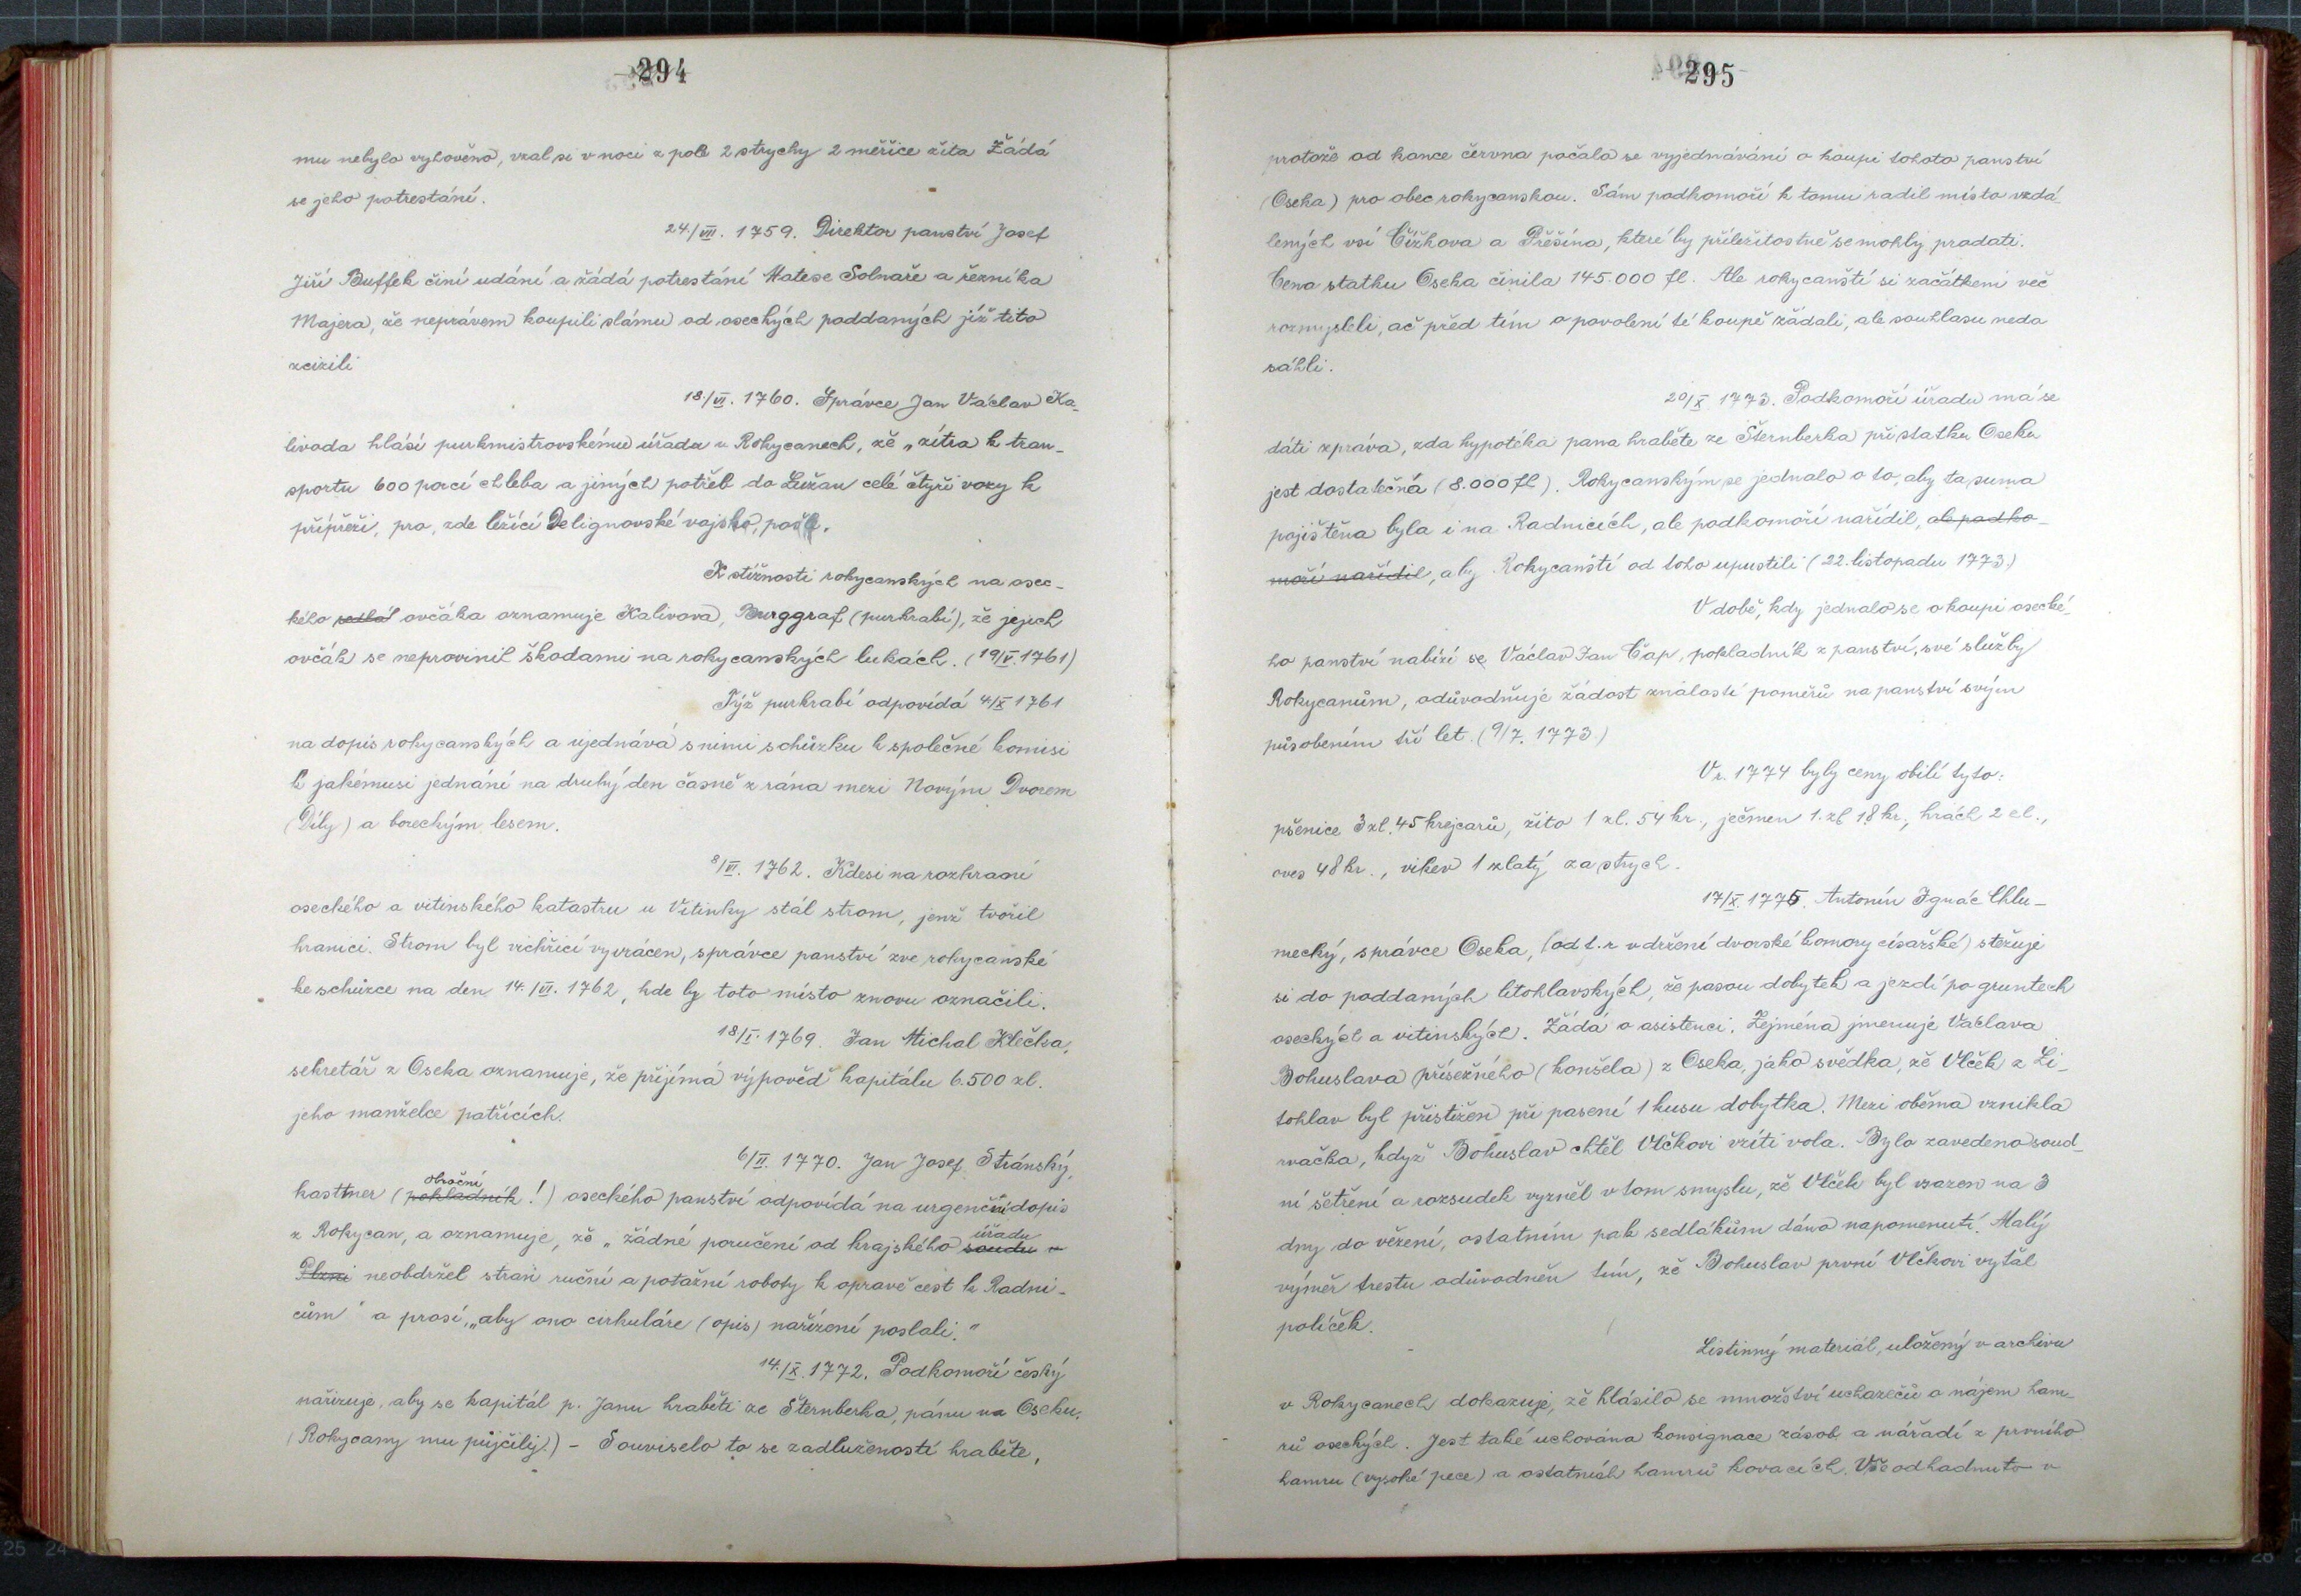 294
mu nebylo vyhověno, vzal si v noci z pole 2 strychy 2 měřice žita Žádá
se jeho potrestání.
24./VIII. 1759. Direktor panství Josef
Jiří Buffek činí udání a žádá potrestání Matese Solnaře a řezníka
Majera, že neprávem koupili slámu od oseckých poddaných již tito
zcizili
18./VI. 1760. Správce Jan Václav Ka-
livoda hlásí purkmistrovskému úřadu v Rokycanech, že „zítra k tran-
sportu 600 porcí chleba a jiných potřeb do Lužan celé čtyři vozy k
přípřeži, pro, zde ležící Delignovské vojsko, pošle.
K stížnosti rokycanských na osec-
kého sedlá ovčáka oznamuje Kalivova, Burggraf (purkrabí), že jejich
ovčák se neprovinil škodami na rokycanských lukách. (19/V.1761)
Týž purkrabí odpovídá 4/X 1761
na dopis rokycanských a ujednává s nimi schůzku k společné komisi
k jakémusi jednání na druhý den časně z rána mezi Novým Dvorem
(Díly) a boreckým lesem.
8/VI. 1762. Kdesi na rozhraní
oseckého a vitinského katastru u Vitinky stál strom, jenž tvořil
hranici. Strom byl vichřicí vyvrácen, správce panství zve rokycanské
ke schůzce na den 14./VI. 1762, kde by toto místo znovu označili.
18/I. 1769. Jan Michal Klečka,
sekretář z Oseka oznamuje, že přijímá výpověď kapitálu 6.500 zl.
jeho manželce patřících.
6/II. 1770. Jan Josef Stránský,
obroční
kasttner (pokladník!) oseckého panství odpovídá na urgenční dopis
úřadu
z Rokycan, a oznamuje, že „žádné poručení od krajského soudu v
Plzni neobdržel straň ruční a potažní roboty k opravě cest k Radni-
cům" a prosí, „aby ono cirkuláre (opis) nařízení poslali."
14./X. 1772. Podkomoří český
nařizuje, aby se kapitál p. Janu hraběti ze Šternberka, pánu na Oseku,
(Rokycany mu půjčily.) - Souviselo to se zadlužeností hraběte,
295
protože od konce června počalo se vyjednávání o koupi tohoto panství
(Oseka) pro obec rokycanskou. Sám podkomoří k tomu radil místo vzdá-
lených vsí Čížkova a Přešína, které by příležitostně se mohly prodati.
Cena statku Oseka činila 145.000 fl. Ale rokycanští si začátkem věc
rozmysleli, ač před tím o povolení té koupě žádali, ale souhlasu nedo
sáhli.
20/X 1773. Podkomoří úřadu má se
dáti zpráva, zda hypotéka pana hraběte ze Šternberka při statku Oseku
jest dostatečná (8.000 fl). Rokycanským se jednalo o to, aby ta suma
pojištěna byla i na Radnicích, ale podkomoří nařídil, ale podko-
moří nařídil, aby Rokycanští od toho upustili (22. listopadu 1773.)
V době, kdy jednalo se o koupi osecké-
ho panství nabízí se Václav Jan Čap, pokladník z panství, své služby
Rokycanům, odůvodňuje žádost znalostí poměrů na panství svým
působením tří let. (9/7. 1773.)
V r. 1774 byly ceny obilí tyto:
pšenice 3 zl. 45 krejcarů, žito 1 zl. 54 kr., ječmen 1. zl 18 kr., hrách 2 zl.,
oves 48 kr., vikev 1 zlatý za strych.
17/X. 1775. Antonín Ignác Chlu-
mecký, správce Oseka, (od t. r. v držení dvorské komory císařské) stěžuje
si do poddaných litohlavských, že pasou dobytek a jezdí po gruntech
oseckých a vitinských. Žádá o asistenci. Zejména jmenuje Václava
Bohuslava přísežného (konšela) z Oseka, jako svědka, že Vlček z Li-
tohlav byl přistižen při pasení 1 kusu dobytka. Mezi oběma vznikla
rvačka, když Bohuslav chtěl Vlčkovi vzíti vola. Bylo zavedeno soud-
ní šetření a rozsudek vyzněl v tom smyslu, že Vlček byl vsazen na 3
dny do vězení, ostatním pak sedlákům dáno napomenutí. Malý
výměr trestu odůvodněn tím, že Bohuslav první Vlčkovi vyťal
políček.
Listinný materiál, uložený v archivu
v Rokycanech dokazuje, že hlásilo se množství uchazečů o nájem ham-
rů oseckých. Jest také uchována konsignace zásob a nářadí z prvního
hamru (vysoké pece) a ostatních hamrů kovacích. Vše odhadnuto v